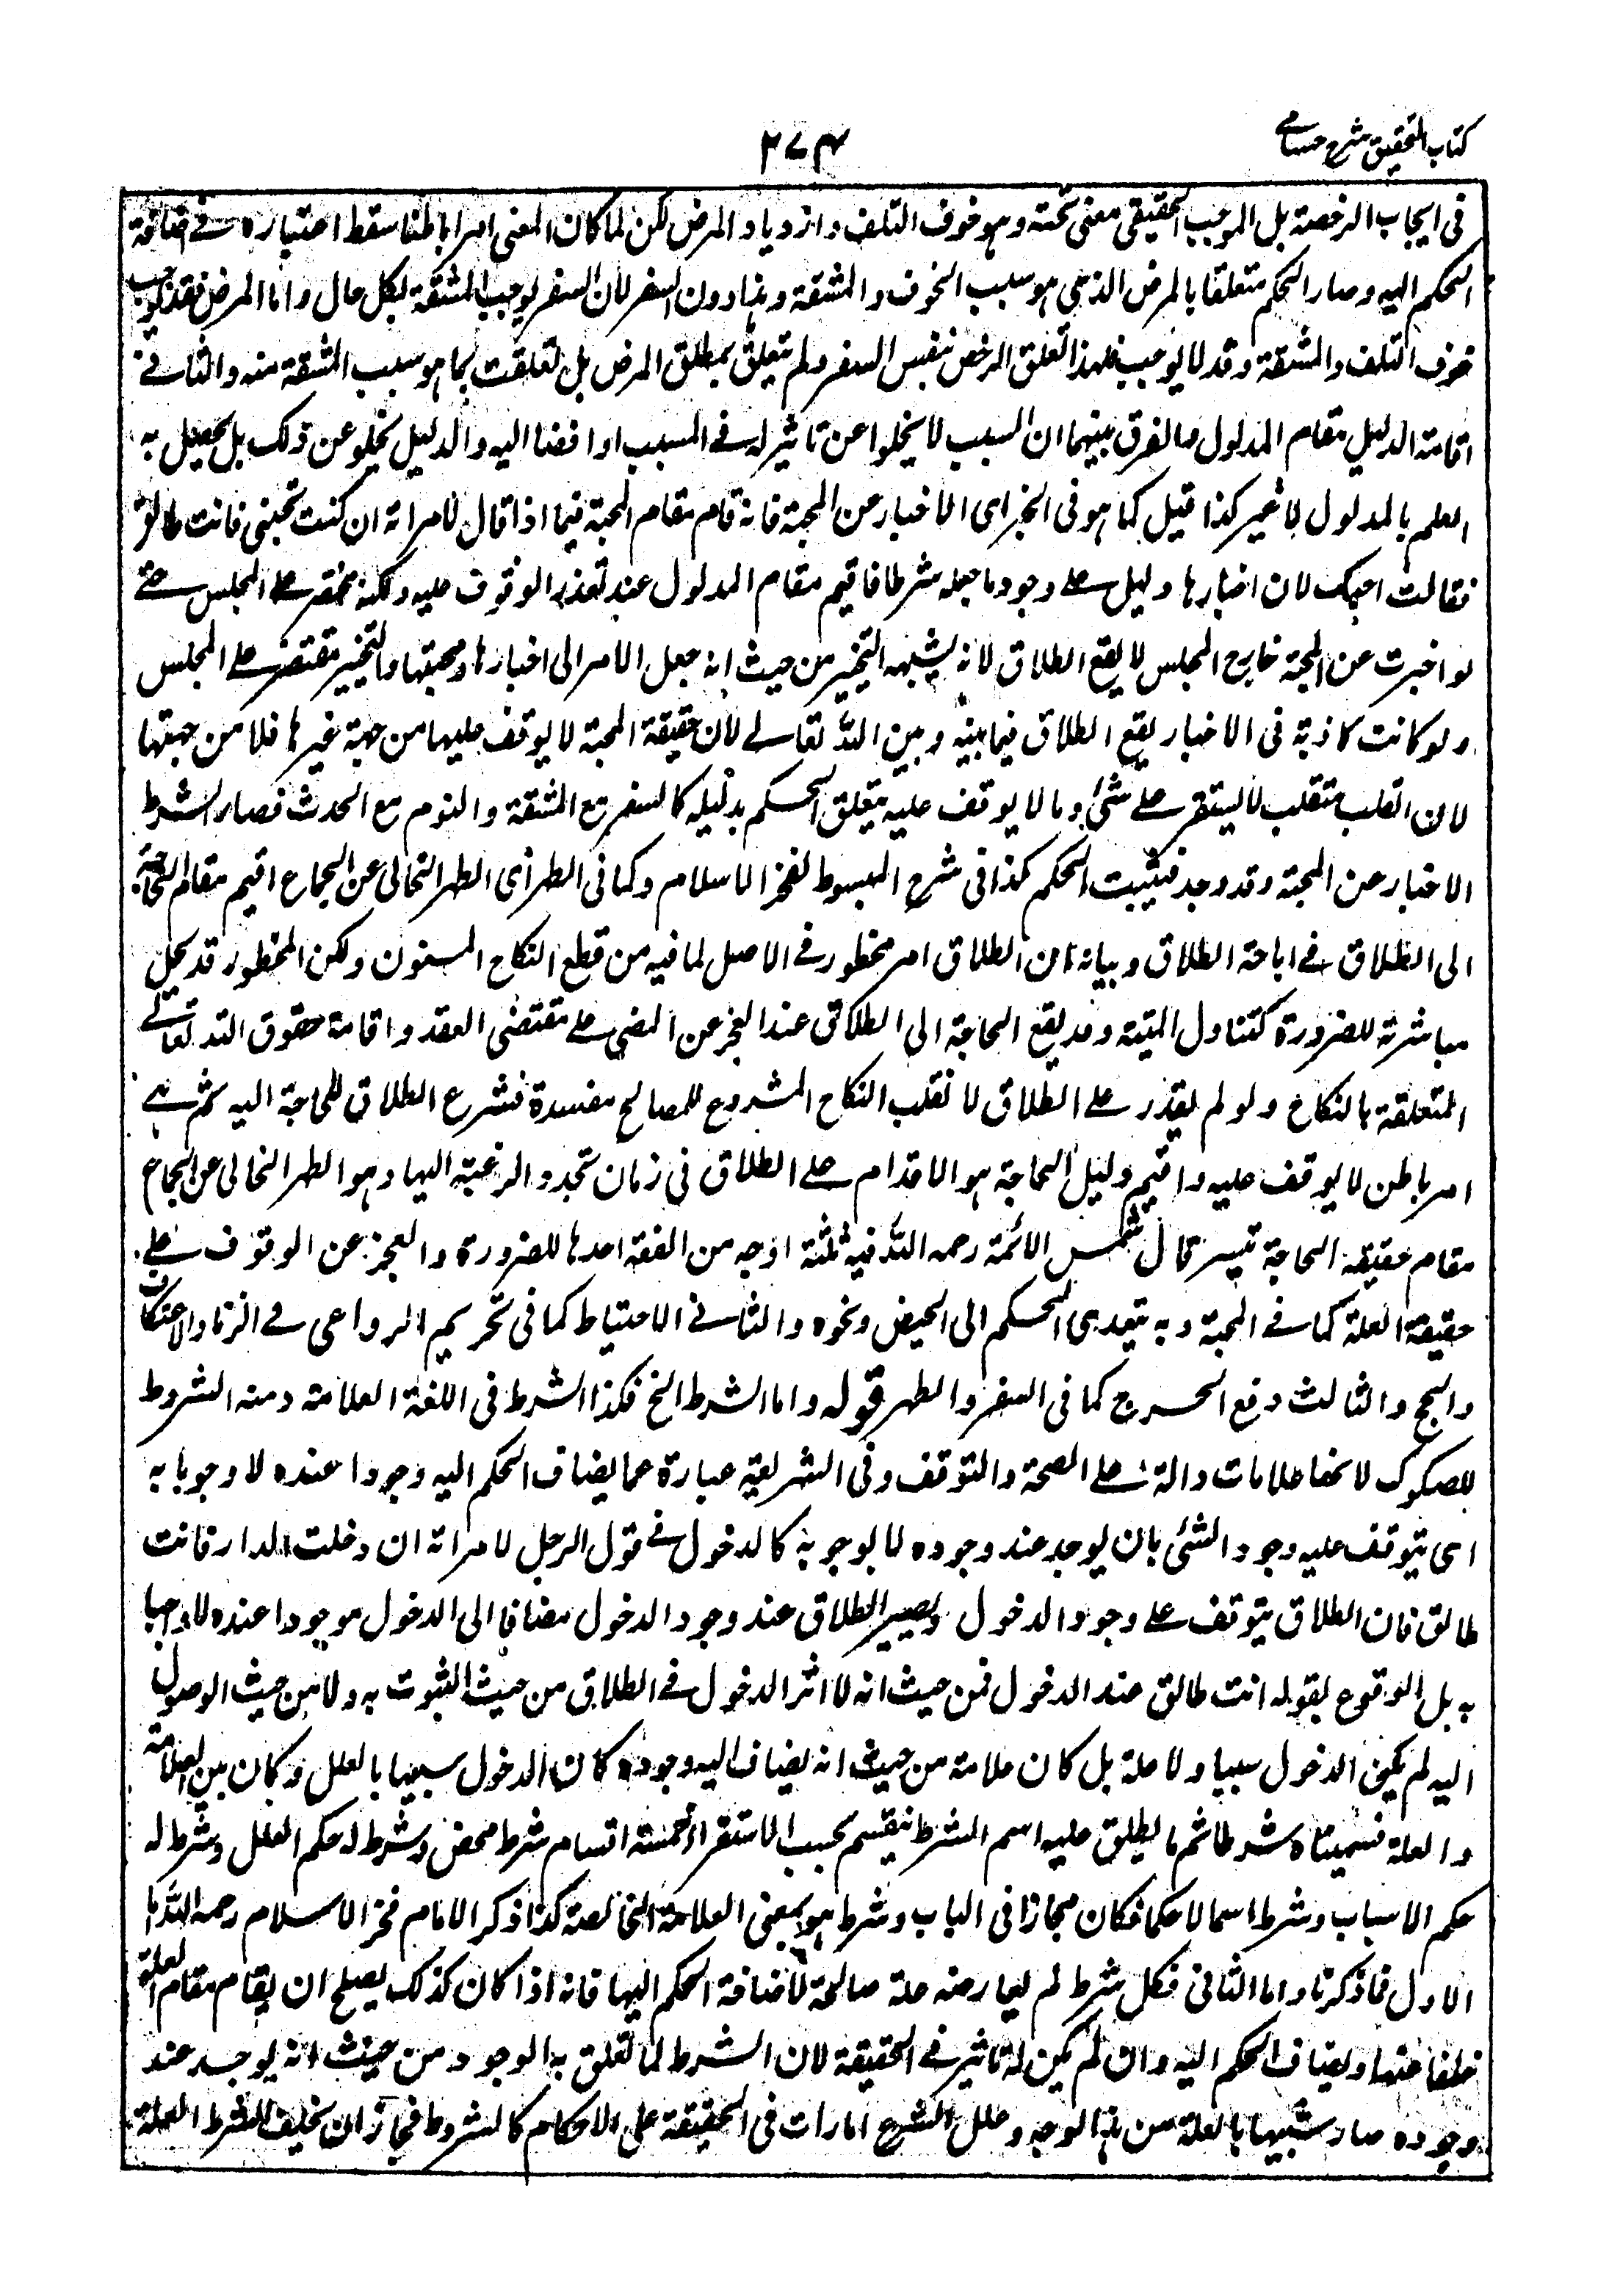 كتاب التحقيق شرح حسامي
٢٧٤
في ايجاب الرخصة بل الموجب الحقيقي معنى تحته وهو خوف التلف وازدياد المرض لكن لما كان المعنى امرا باطنا سقط اعتباره في اضافة
الحكم اليه وصار الحكم متعلقا بالمرض الذي هو سبب الخوف والمشقة وهذا دون السفر لان السفر يوجب المشقة بكل حال واما المرض فقد يوجب
خوف التلف والمشقة وقد لا يوجب فلهذا تعلق الرخص بنفس السفر ولم يتعلق بمطلق المرض بل تعلقت بما هو سبب المشقة منه والثاني
اقامة الدليل مقام المدلول والفرق بينهما ان السبب لا يخلوا عن تاثير له في المسبب او افضا اليه والدليل يخلو عن ذلك بل يحصل به
العلم بالمدلول لا غير كذا قيل كما هو في الخبر اى الاخبار عن المحبة فانه قام مقام المحبة فيما اذا قال لامراته ان كنت تحبني فانت طالق
فقالت احبك لان اخبارها دليل على وجود ما جعله شرطا فاقيم مقام المدلول عند تعذر الوقوف عليه ولكنه مقتصر على المجلس حتى
لو اخبرت عن المحبة خارج المجلس لا يقع الطلاق لانه يشبهه التخيير من حيث انه جعل الامر الى اخبارها ومحبتها والتخيير مقتصر على المجلس
ولو كانت كاذبة في الاخبار يقع الطلاق فيما بينه وبين الله تعالى لان حقيقة المحبة لا يوقف عليها من جهة غيرها فلا من جهتها
لان القلب متقلب لا يستقر على شئ وما لا يوقف عليه يتعلق الحكم بدليله كالسفر مع المشقة والنوم مع الحدث فصار الشرط
الاخبار عن المحبة وقد وجد فيثبت الحكم كذا في شرح المبسوط لفخر الاسلام وكما في الطهر اى الطهر الخالي عن الجماع اقيم مقام الحاجة
الى الطلاق في اباحة الطلاق وبيانه ان الطلاق امر محظور في الاصل لما فيه من قطع النكاح المسنون ولكن المحظور قد يحل
مباشرته للضرورة كتناول الميتة وقد يقع الحاجة الى الطلاق عند العجز عن المضي على مقتضى العقد واقامة حقوق الله تعالى
المتعلقة بالنكاح ولو لم يقدر على الطلاق لا نقلب النكاح المشروع للمصالح مفسدة فشرع الطلاق للحاجة اليه ثم هي
امر باطن لا يوقف عليه واقيم دليل الحاجة هو الاقدام على الطلاق في زمان تجدد الرغبة اليها وهو الطهر الخالي عن الجماع
مقام حقيقة الحاجة تيسر قال شمس الائمة رحمه الله فيه ثلثة اوجه من الفقه احدها للضرورة والعجز عن الوقوف على
حقيقة العلة كما في المحبة وبه يتعدى الحكم الى الحيض ونحوه والثاني الاحتياط كما في تحريم الدواعي في الزنا والاعتكاف
والحج والثالث دفع الحرج كما في السفر والطهر قوله واما الشرط الخ فكذا الشرط في اللغة العلامة ومنه الشروط
للصكوك لانها علامات دالة على الصحة والتوقف وفي الشريعة عبارة عما يضاف الحكم اليه وجودا عنده لا وجوبا به
اى يتوقف عليه وجود الشئ بان يوجد عند وجوده لا بوجوبه كالدخول في قول الرجل لامراته ان دخلت الدار فانت
طالق فان الطلاق يتوقف على وجود الدخول ويصير الطلاق عند وجود الدخول مضافا الى الدخول موجودا عنده لا واجبا
به بل الوقوع بقوله انت طالق عند الدخول فمن حيث انه لا اثر الدخول في الطلاق من حيث الثبوت به ولا من حيث الوصول
اليه لم يكن الدخول سببا ولا علة بل كان علامة من حيث انه يضاف اليه وجوده كان الدخول شبيها بالعلل وكان بين العلامة
والعلة فسميناه شرطا ثم ما يطلق عليه اسم الشرط ينقسم بحسب الاستقراء خمسة اقسام شرط محض وشرط له حكم العلل وشرط له
حكم الاسباب وشرط اسما لا حكما فكان مجازا في الباب وشرط هو بمعنى العلامة الخالصة كذا ذكر الامام فخر الاسلام رحمه الله اما
الاول فما ذكرنا واما الثاني فكل شرط لم يعارضه علة صالحة لاضافة الحكم اليها فانه اذا كان كذلك يصلح ان يقام مقام العلة
خلفا عنها ويضاف الحكم اليه وان لم يكن له تاثير في الحقيقة لان الشرط لما تعلق به الوجود من حيث انه يوجد عند
وجوده صار شبيها بالعلة من هذا الوجه وعلل الشرع امارات في الحقيقة على الاحكام كالشروط فجاز ان يخلف الشرط العلة